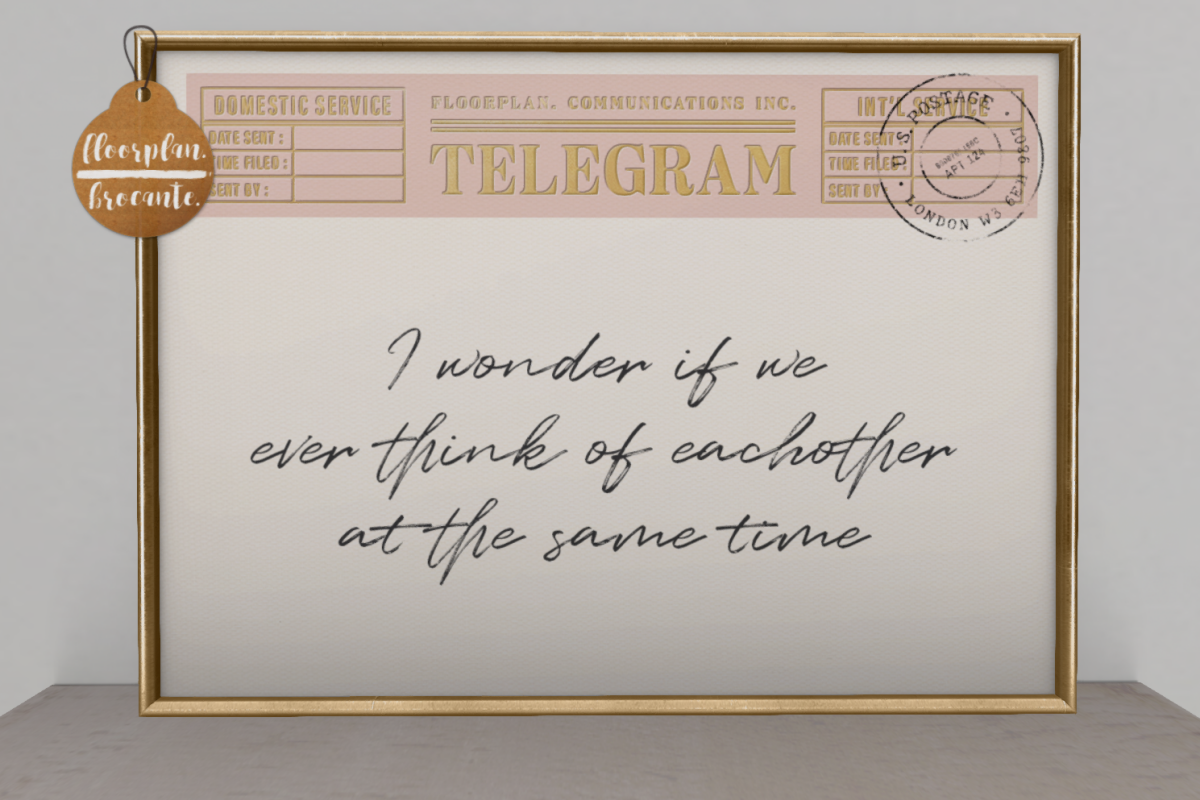 floorplan.
brocante.
DOMESTIC SERVICE
DATE SENT :
TIME FILED :
SENT BY :
FLOORPLAN. COMMUNICATIONS INC.
TELEGRAM
INT'L SERVICE
DATE SENT
TIME FILED :
SENT BY
U.S. POSTAGE
APT 124
LONDON W3 6EH 9807
I wonder if we
ever think of eachother
at the same time